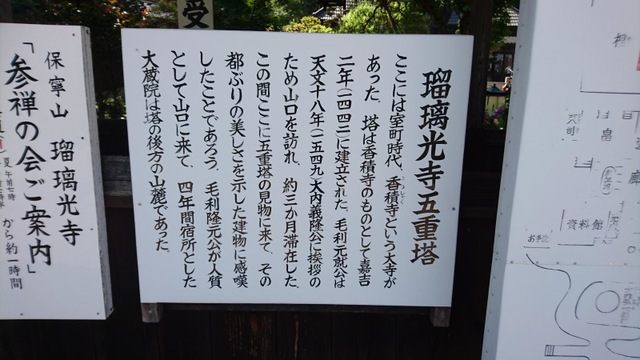 瑠璃光寺五重塔
ここには室町時代、香積寺という大寺が
あった。塔は香積寺のものとして嘉吉
二年(一四四二)に建立された。毛利元就公は
天文十八年(一五四九)大内義隆公に挨拶の
ため山口を訪れ、約三か月滞在した。
この間ここに五重塔の見物に来て、その
都ぶりの美しさを示した建物に感嘆
したことであろう。毛利隆元公が人質
として山口に来て、四年間宿所とした
大蔵院は塔の後方の山麓であった。
保寧山 瑠璃光寺
「参禅の会ご案内」
夏 午前七時
から約一時間
受
資料館
お手洗